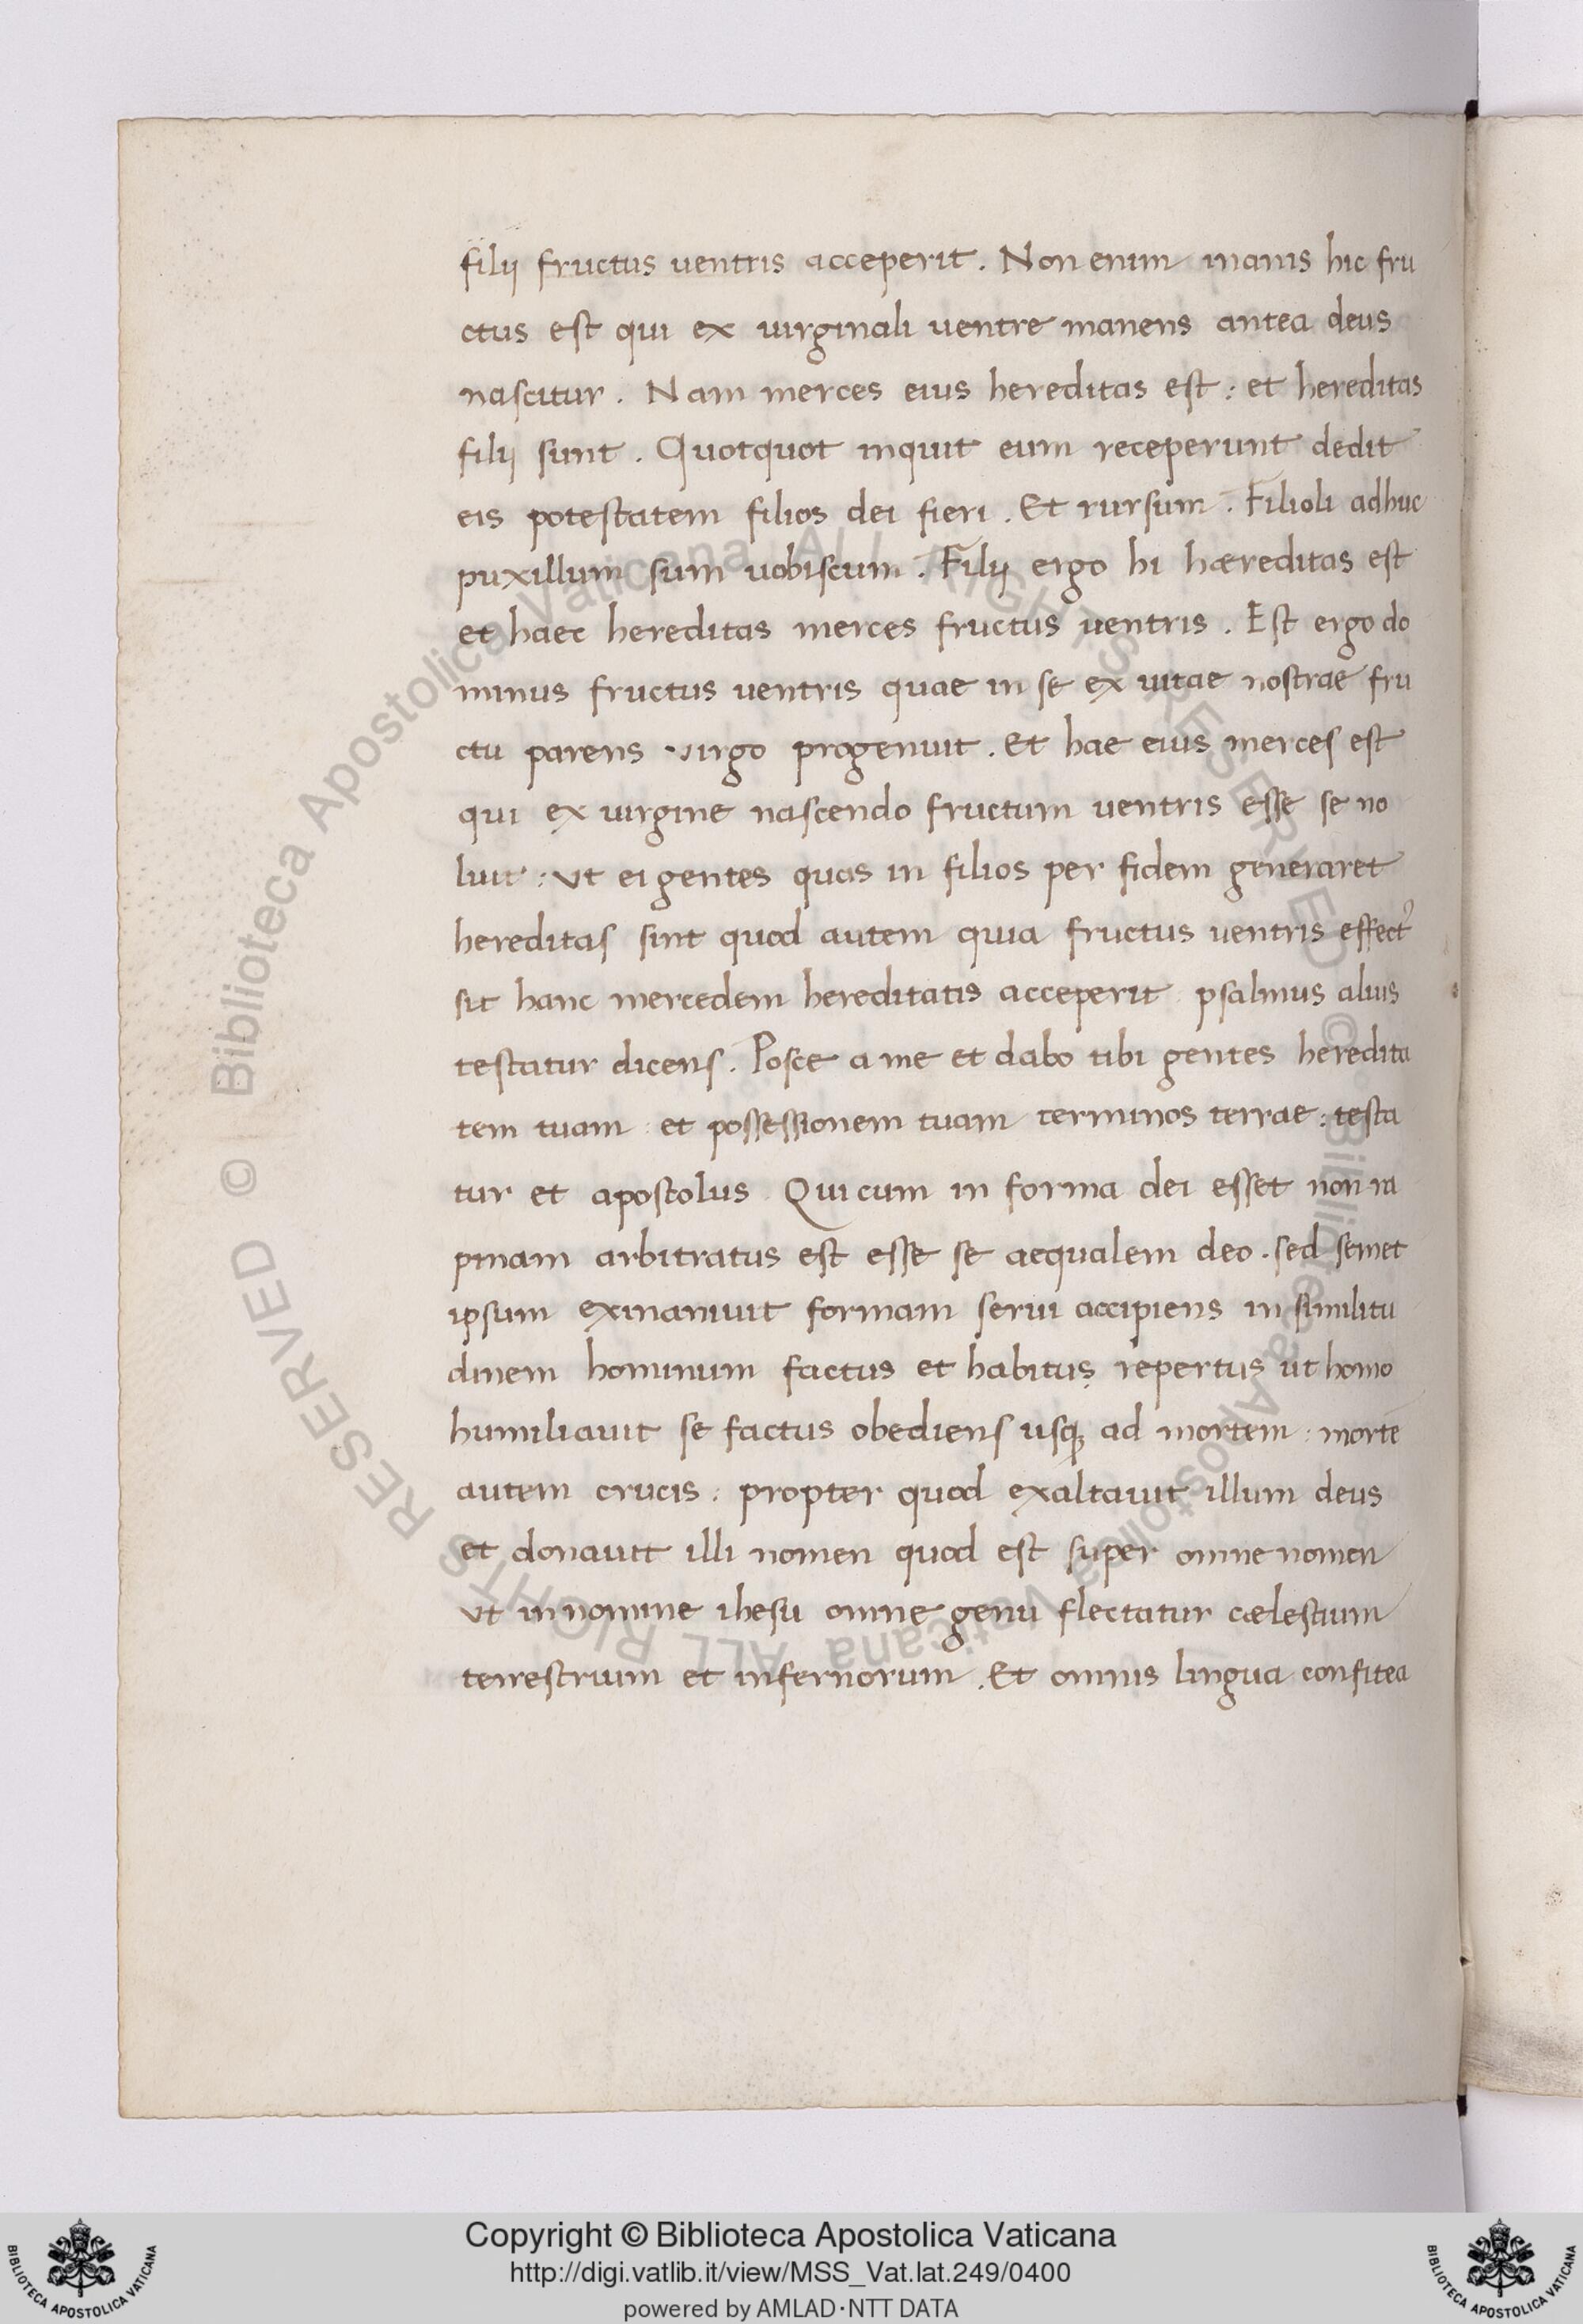 filij fructus uentris acceperit. Non enim inanis hic fru
ctus est qui ex uirginali uentre manens antea deus
nascitur. Nam merces eius hereditas est: et hereditas
filij sunt. Quotquot inquit eum receperunt dedit
eis potestatem filios dei fieri. Et rursum. Filioli adhuc
puxillum sum uobiscum. Filij ergo hi hæreditas est
et haec hereditas merces fructus uentris. Est ergo do
minus fructus uentris quae in se ex uitae nostrae fru
ctu parens uirgo progenuit. Et hae eius merces est
qui ex uirgine nascendo fructum uentris esse se no
luit: ut ei gentes quas in filios per fidem generaret
hereditas sint quod autem quia fructus uentris effect᾿
sit hanc mercedem hereditatis acceperit psalmus alius
testatur dicens. Posce a me et dabo tibi gentes heredita
tem tuam: et possessionem tuam terminos terrae: testa
tur et apostolus. Qui cum in forma dei esset non ra
pinam arbitratus est esse se aequalem deo. sed semet
ipsum exinaniuit formam serui accipiens in similitu
dinem hominum factus et habitus repertus ut homo
humiliauit se factus obediens usq; ad mortem: morte
autem crucis: propter quod exaltauit illum deus
et donauit illi nomen quod est super omne nomen
ut in nomine ihesu omne genu flectatur cælestium
terrestrium et infernorum. Et omnis lingua confitea
© Biblioteca Apostolica Vaticana ALL RIGHTS RESERVED © Biblioteca Apostolica Vaticana ALL RIGHTS RESERVED
Copyright © Biblioteca Apostolica Vaticana
http://digi.vatlib.it/view/MSS_Vat.lat.249/0400
powered by AMLAD·NTT DATA
BIBLIOTECA APOSTOLICA VATICANA
BIBLIOTECA APOSTOLICA VATICANA